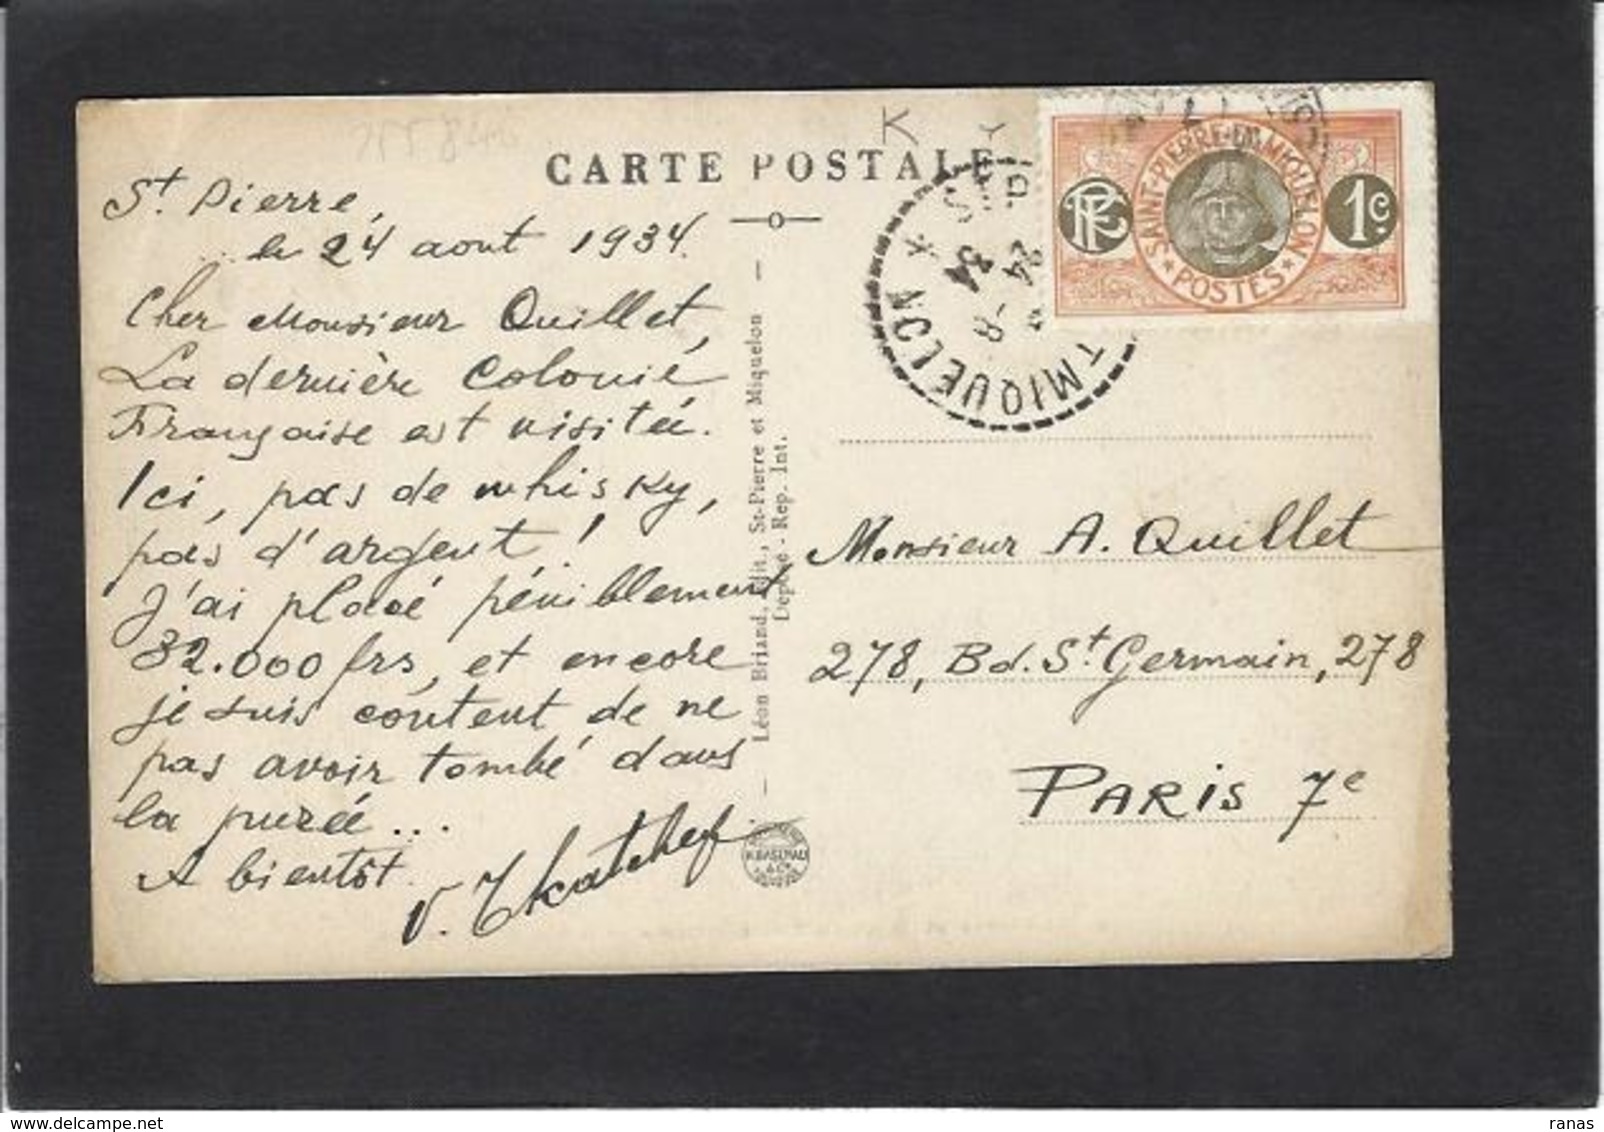 255846
K
CARTE POSTALE
St. Pierre,
le 24 aout 1934.
Cher Monsieur Quillet,
La dernière Colonie
Française est visitée.
Ici, pas de whisky,
pas d'argent!
J'ai placé péniblement
32.000 frs, et encore
je suis content de ne
pas avoir tombé dans
la purée...
A bientôt.
V. Tkatchef
Léon Briand, Edit., St-Pierre et Miquelon
Déposé - Rep. Int.
SAINT-PIERRE-ET-MIQUELON
POSTES
RF
1c
ST
MIQUELON *
24 -8
34
Monsieur A. Quillet
278, Bd. St Germain, 278
PARIS 7e
ranas